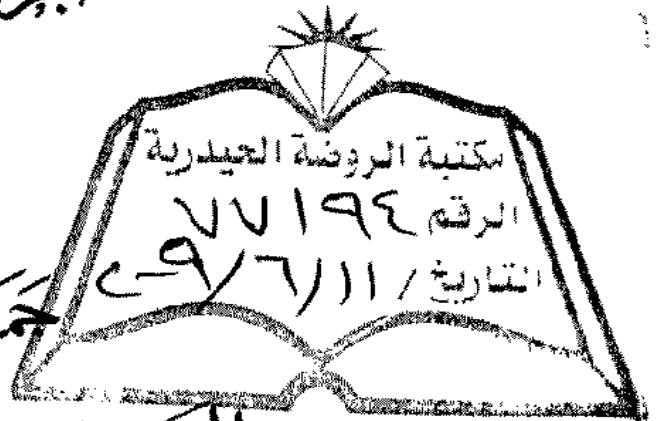 مكتبة الروضة الحيدرية
الرقم ٧٧١٩٤
التاريخ / ١١/٦/٩